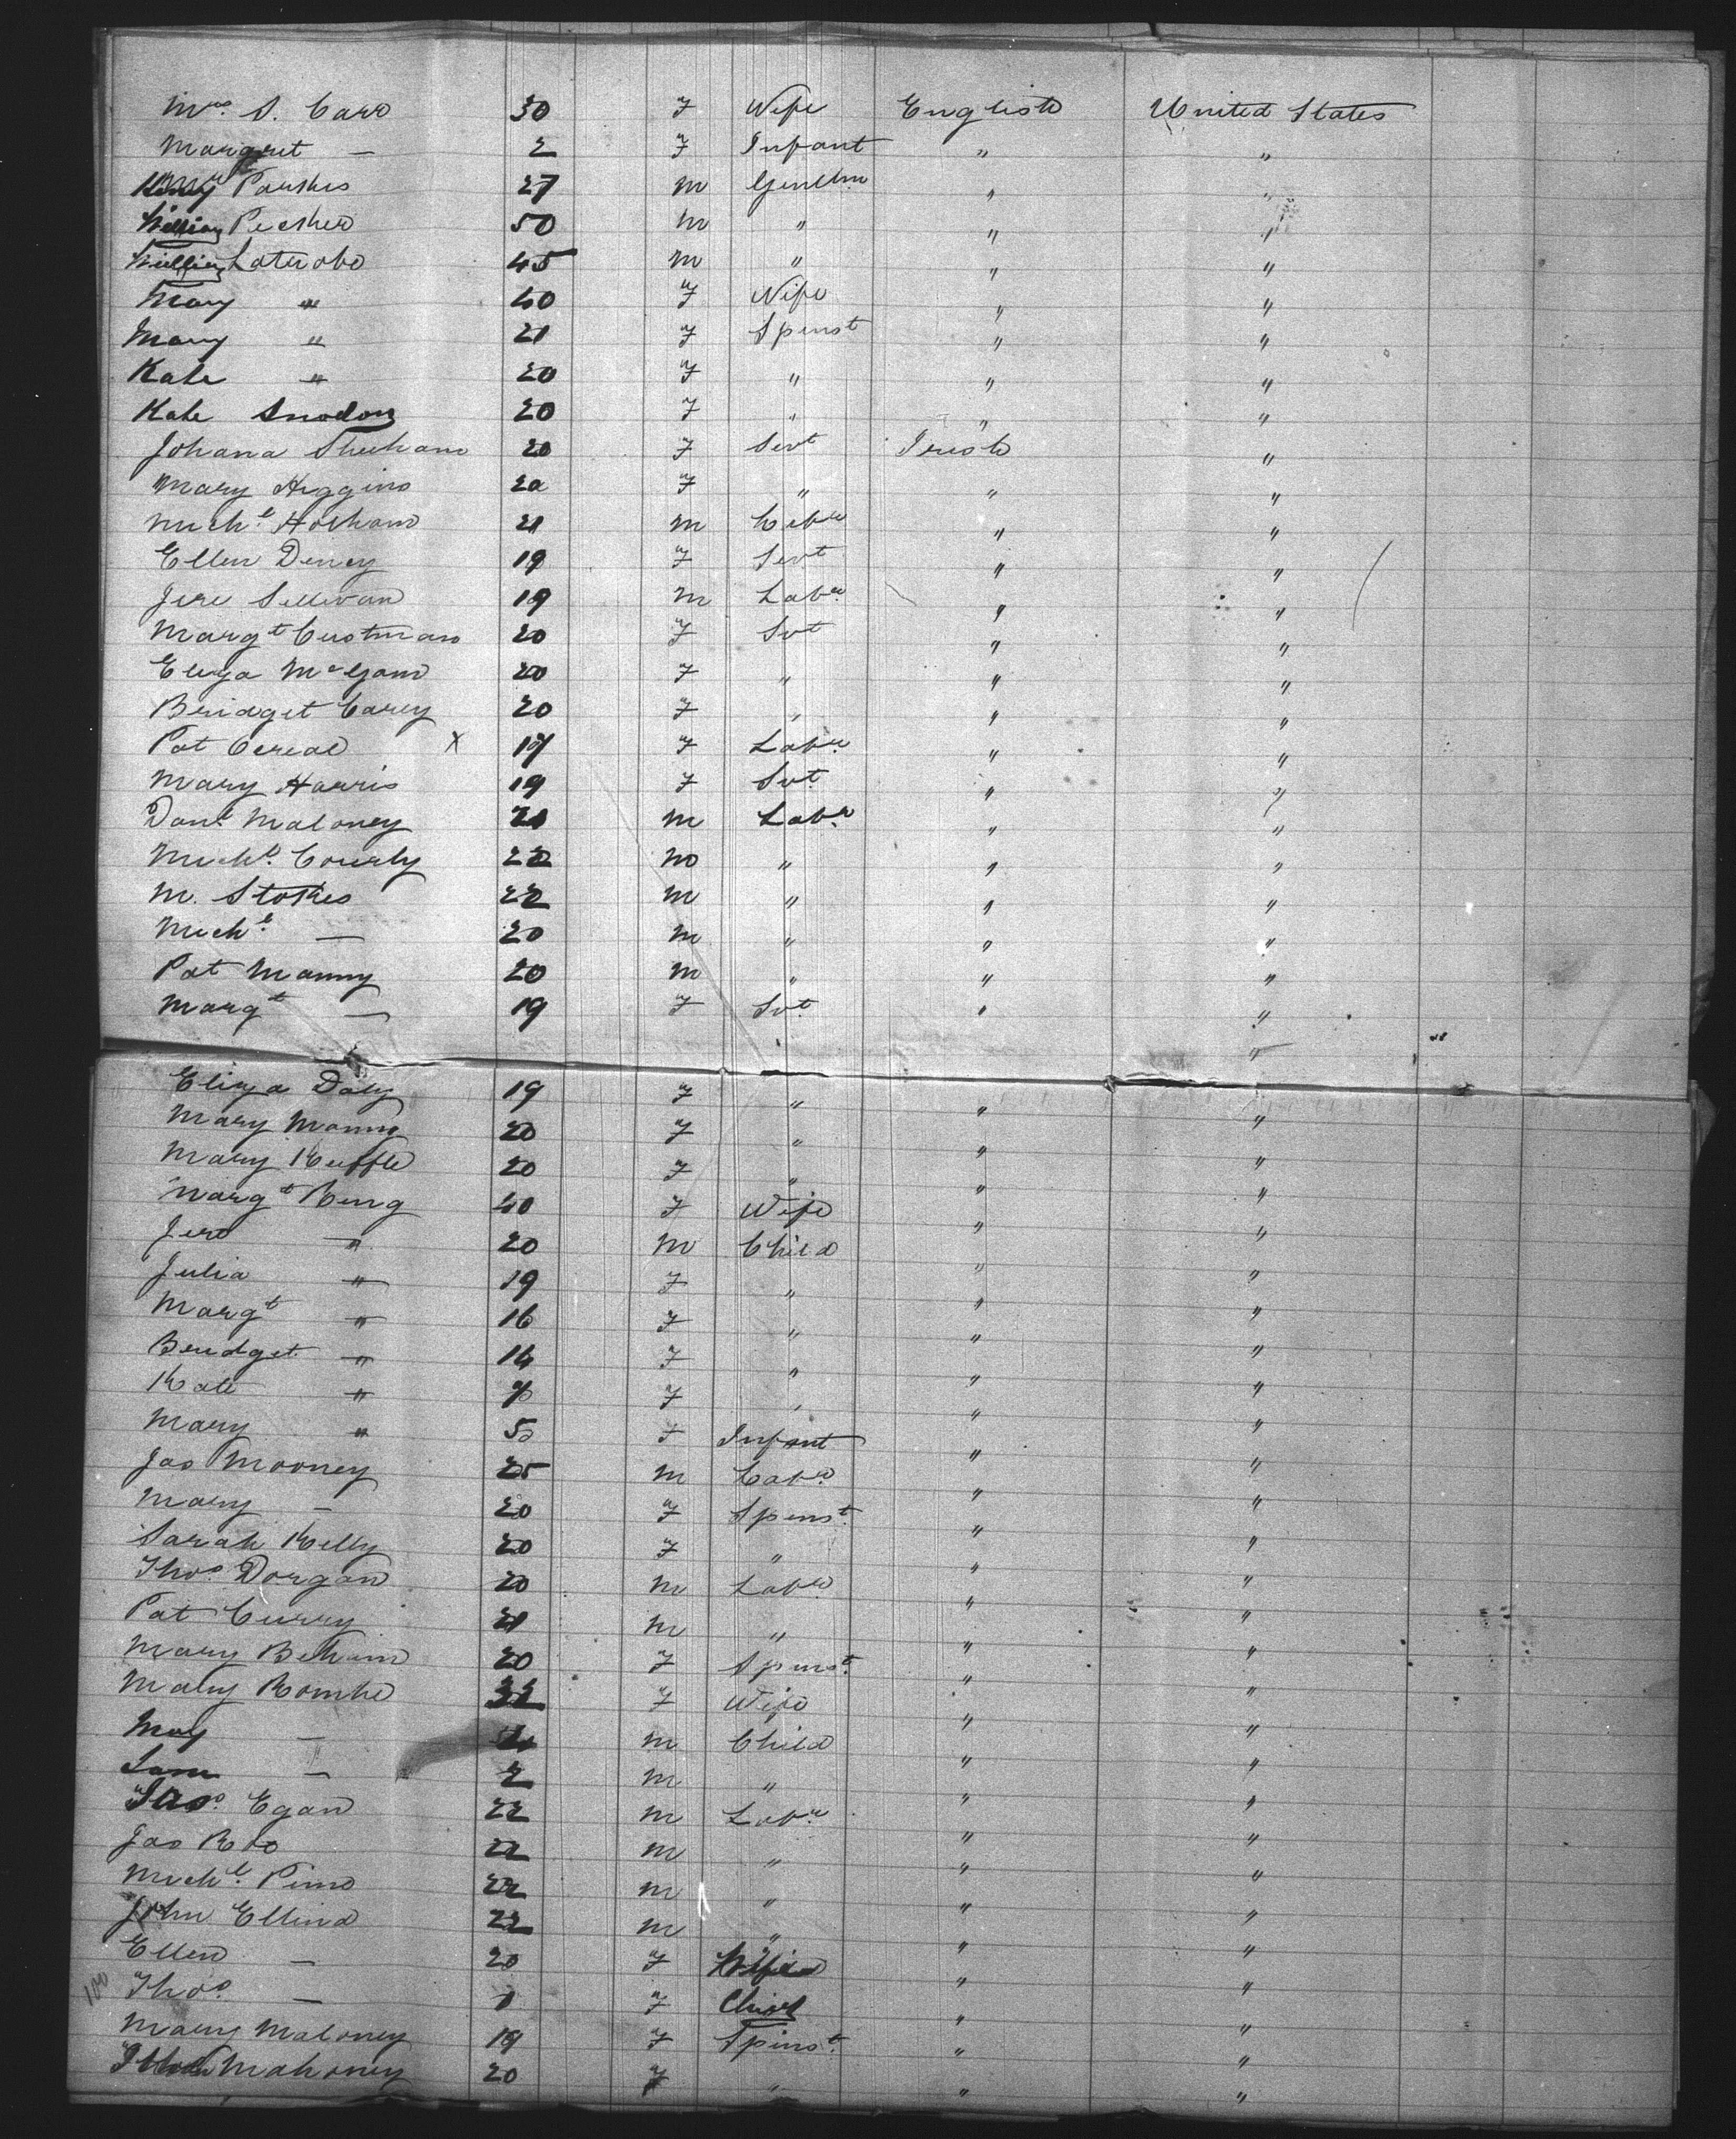 Mrs. S. Carr 30 F Wife English United States
Margret — 2 F Infant " "
Parkes 27 M Gentlm " "
William Pecker 50 M " " "
William Latrobe 45 M " " "
Mary " 40 F Wife " "
Mary " 21 F Spinst " "
Kate " 20 F " " "
Kate Snodon 20 F " " "
Johana Sheehan 20 F Sevt Irish "
Mary Higgins 20 F " " "
Michl. 21 M Labr " "
Ellen Deney 19 F Sevt " "
Jere Sullivan 19 M Labr. " "
Margt Custman 20 F Svt " "
Eliza McGann 20 F " " "
Bridget Carey 20 F " " "
Pat X 17 F Labr. " "
Mary Harris 19 F Svt. " "
Danl. Maloney 21 M Labr. " "
Michl. Courly 22 M " " "
M. Stokes 22 M " " "
Michl. — 20 M " " "
Pat Manny 20 M " " "
Margt — 19 F Svt. " "
"
Eliza Daly 19 F " " "
Mary Manny 20 F " " "
Mary Kuffle 20 F " " "
Margt Ring 40 F Wife " "
Jere " 20 M Child " "
Julia " 19 F " " "
Margt " 16 F " " "
Bridget " 14 F " " "
Kate " F " " "
Mary " 5 F Infant " "
Jas Mooney 25 M Labr. " "
Mary — 20 F Spinst. " "
Sarah Kelly 20 F " " "
Thos. Dorgan 20 M Labr " "
Pat Curry 21 M " " "
Mary Behan 20 F Spinst. " "
Mary 22 F Wife " "
May — M Child " "
Sam — 2 M " " "
Jas. Egan 22 M Labr " "
Jas Roo 22 M " " "
Michl. 22 M " " "
John Ellind 22 M " " "
Ellen — 20 F Wife " "
100 Thos. — 1 F Child " "
Mary Maloney 19 F Spinst. " "
Mahoney 20 F " " "